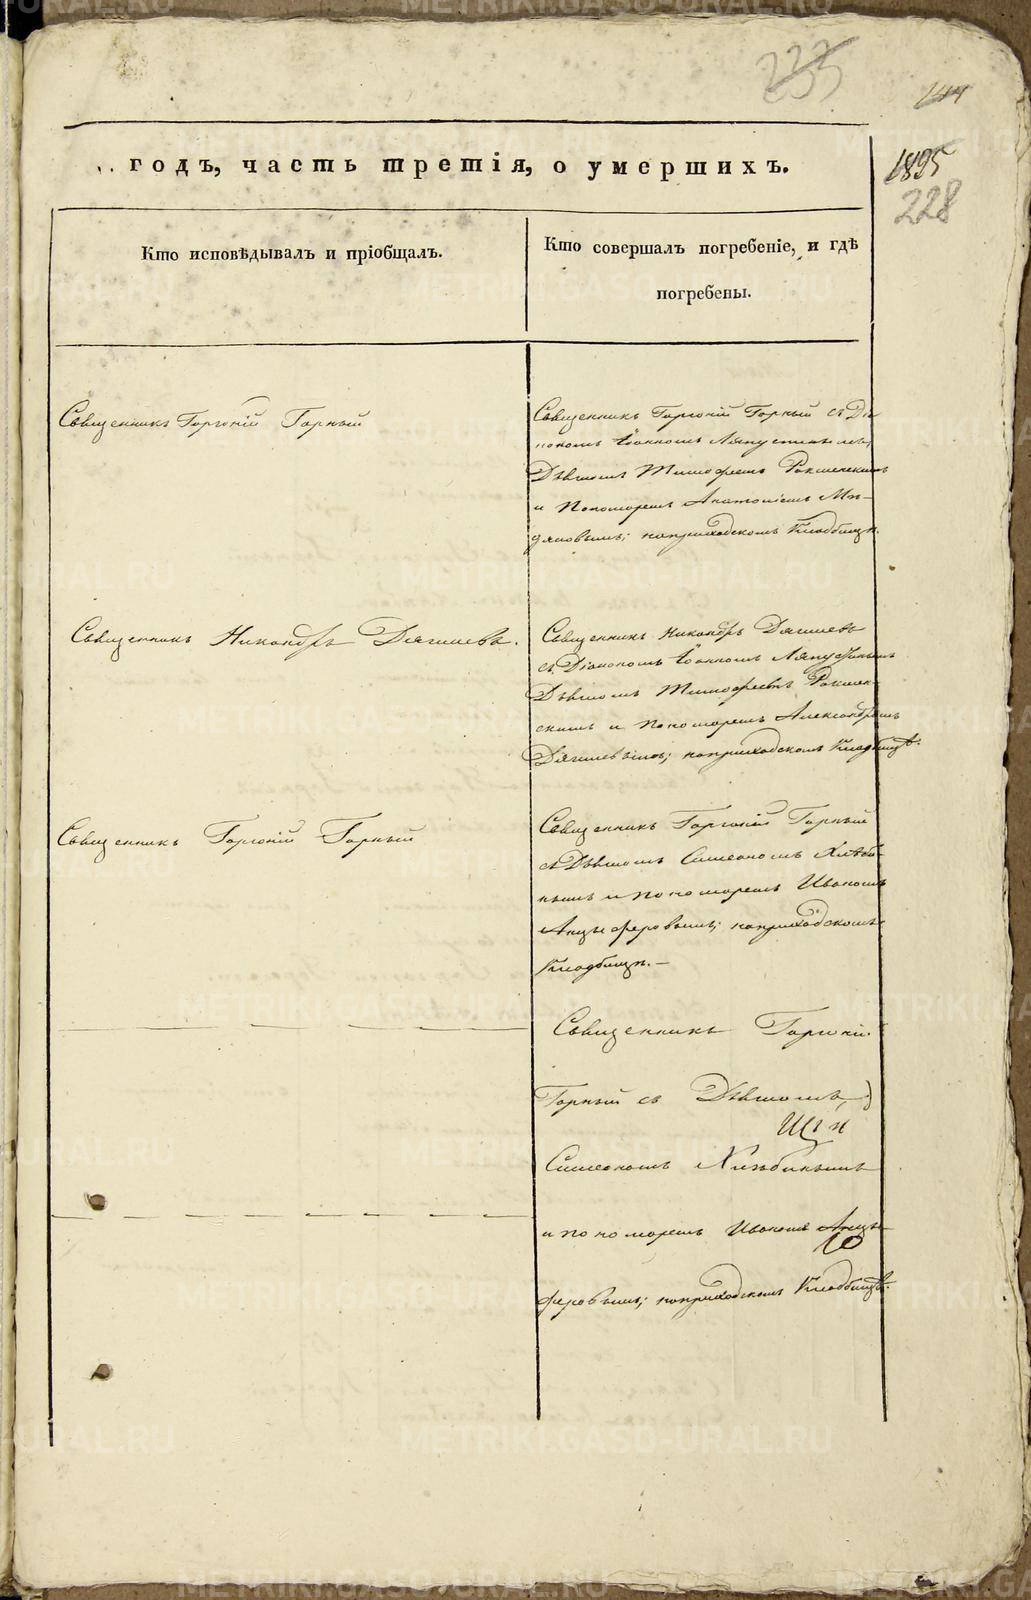 235
144
годъ, часть третія, о умершихъ.
1895
228
Кто исповѣдывалъ и пріобщалъ.
Кто совершалъ погребеніе, и гдѣ
погребены.
Священникъ Горгоній Горный
Священникъ Горгоній Горный съ Діа
кономъ Іоанномъ Ляпустинымъ,
Дьячкомъ Тимофеемъ
и Пономаремъ
наприходскомъ Кладбищѣ.
Священникъ Никандръ Дягилевъ.
Священникъ Никандръ Дягилевъ
съ Діакономъ Іоанномъ Ляпустинымъ
Дьячкомъ Тимофеемъ
скимъ и пономаремъ Александромъ
Дягилевымъ; наприходскомъ Кладбищѣ.
Священникъ Горгоній Горный
Священникъ Горгоній Горный
съ Дьячкомъ Симеономъ Хлѣби-
нымъ и пономаремъ Иваномъ
Анцыферовымъ; наприходскомъ
Кладбищѣ.—
Священникъ Горгоній
Горный съ Дьячкомъ
Симеономъ Хлѣбинымъ
и пономаремъ Иваномъ Анцы-
феровымъ; наприходскомъ Кладбищѣ.
METRIKI.GASO-URAL.RU